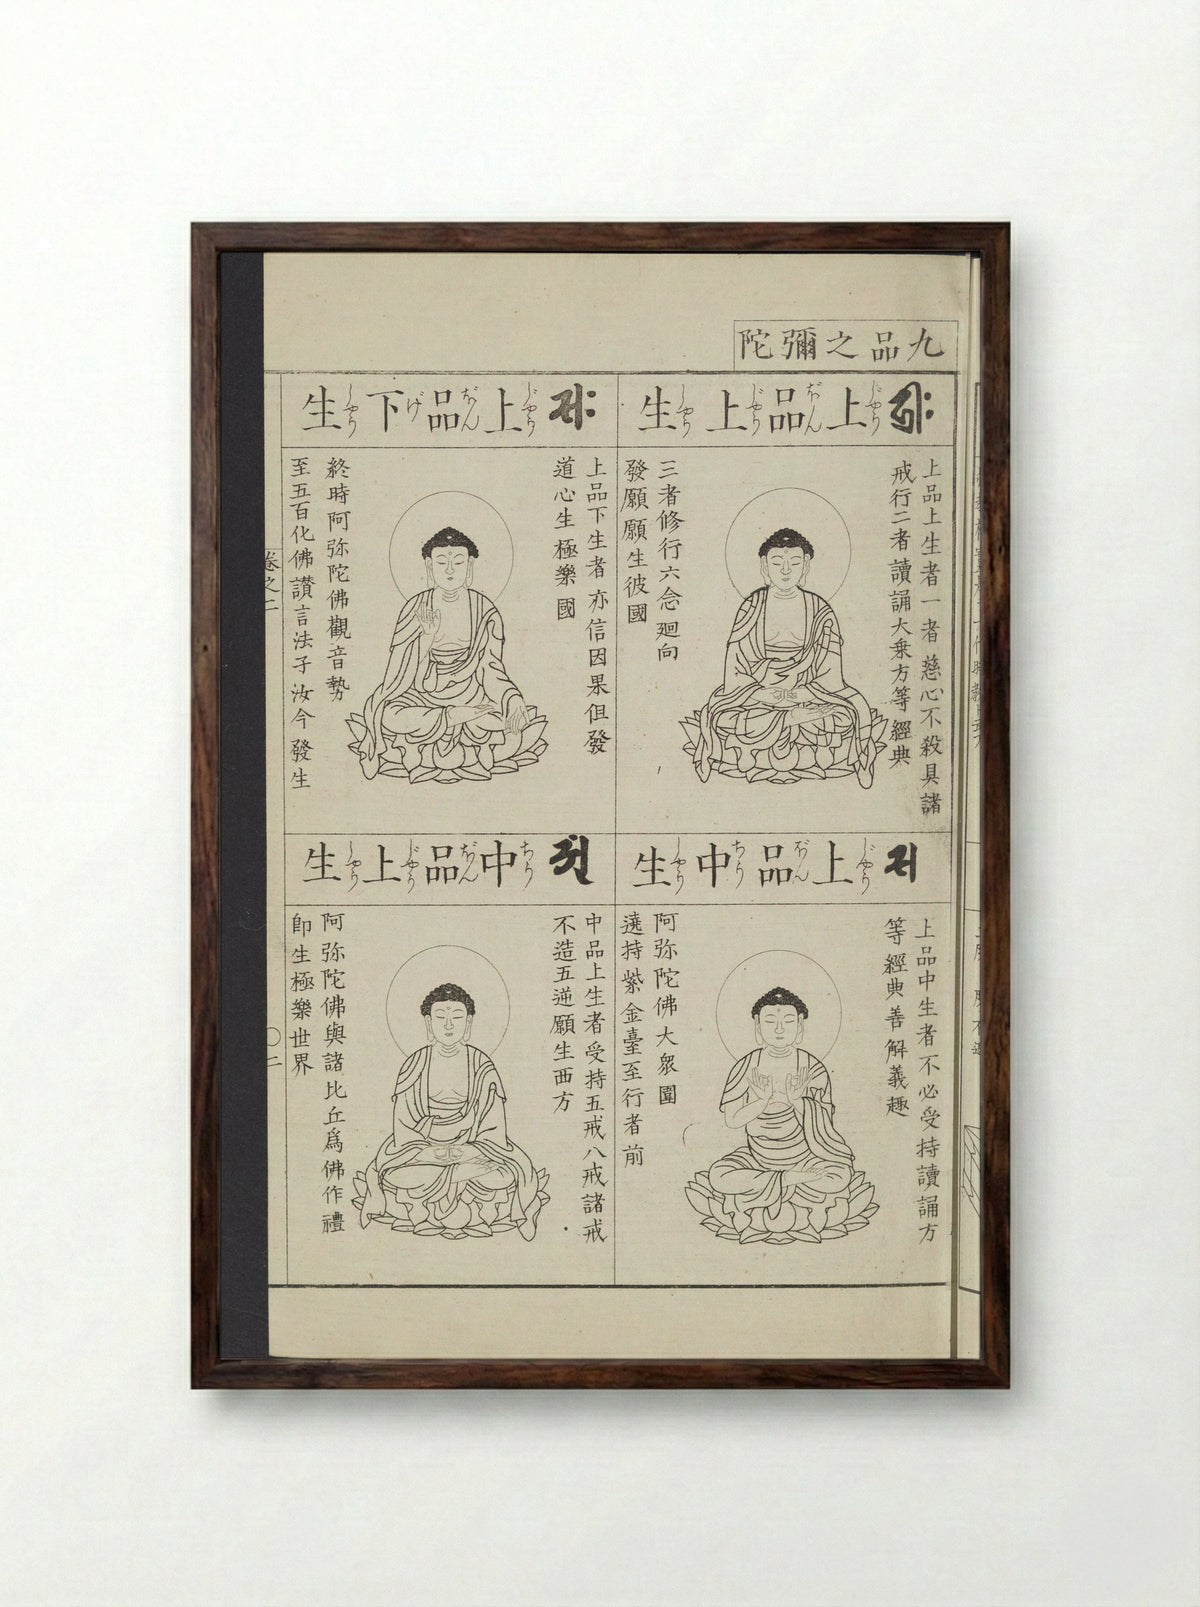 九品之彌陀
上品上生
じやう ぼん じやう しやう
上品上生者一者慈心不殺具諸
戒行二者讀誦大乗方等經典
三者修行六念廻向
發願願生彼國
上品下生
じやう ぼん げ しやう
上品下生者亦信因果但發
道心生極樂國
終時阿弥陀佛觀音勢
至五百化佛讃言法子汝今發生
上品中生
じやう ぼん ちう しやう
上品中生者不必受持讀誦方
等經典善解義趣
阿弥陀佛大衆圍
遶持紫金臺至行者前
中品上生
ちう ぼん じやう しやう
中品上生者受持五戒八戒諸戒
不造五逆願生西方
阿弥陀佛與諸比丘爲佛作禮
即生極樂世界
卷之二
〇二